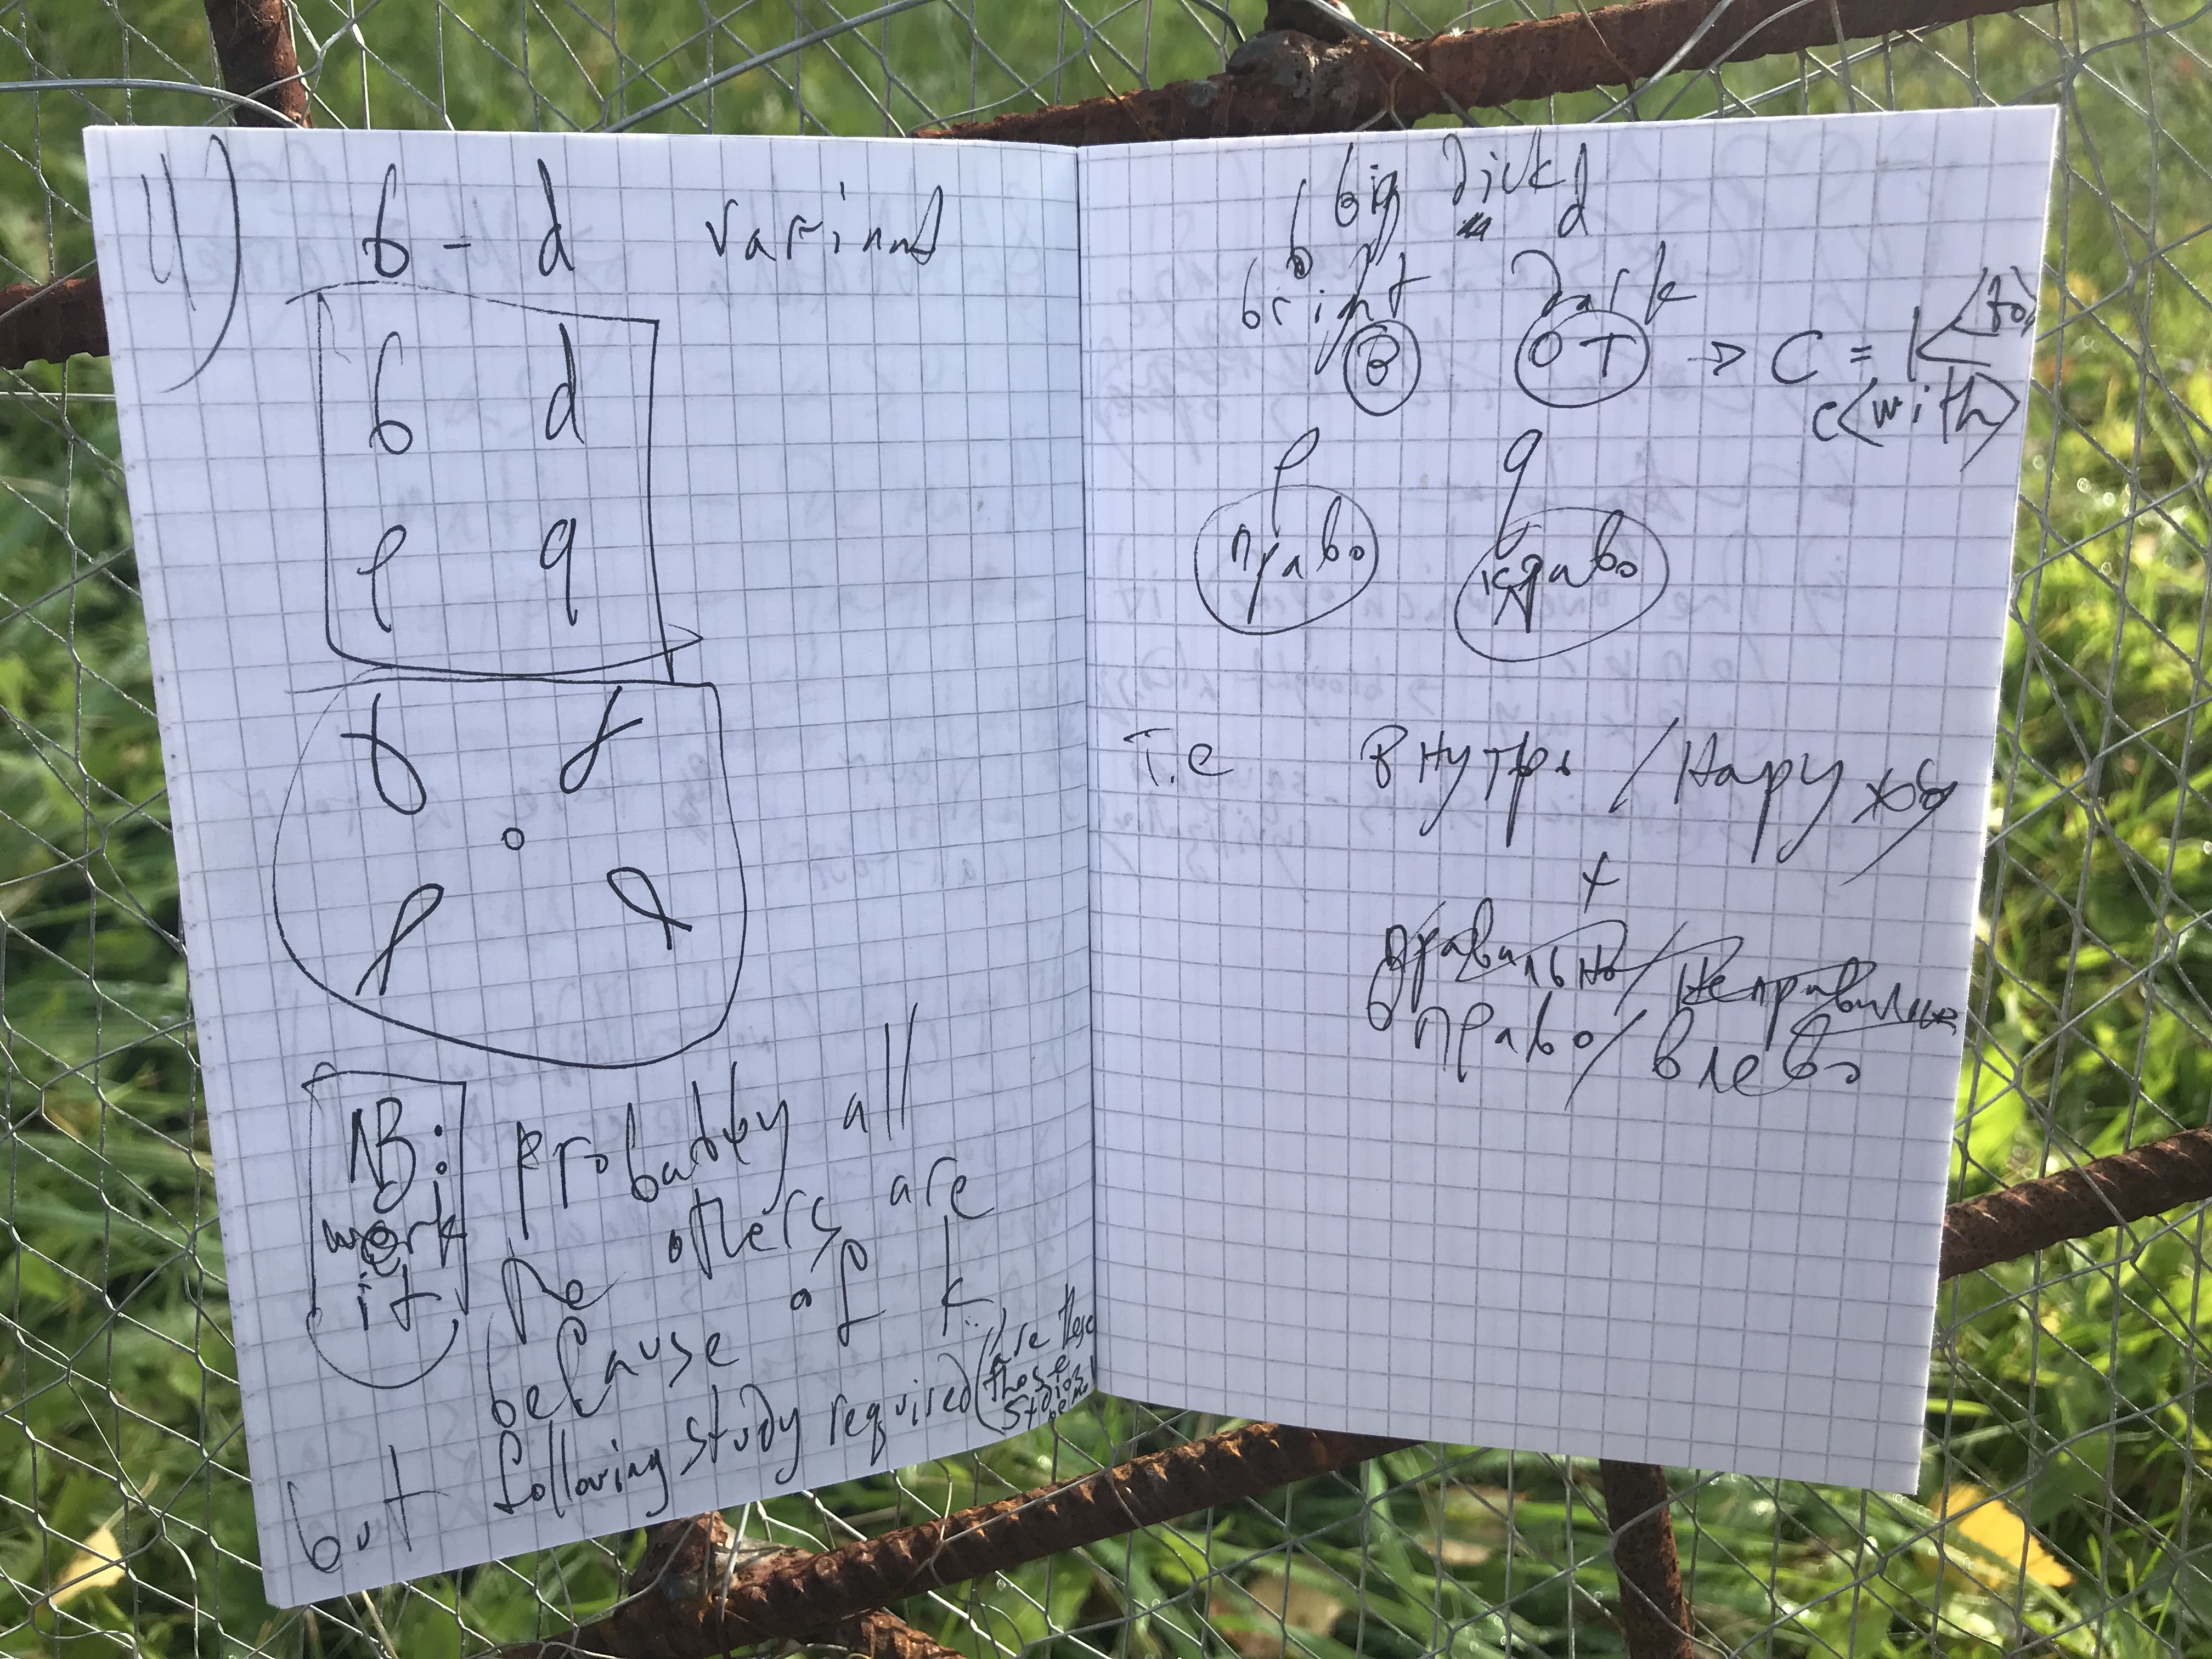 4)
b - d variant
b d
p q
NB: probably all
work the others are
it because of k
but following study required (are these
those
studies
big dick
b d
bright dark
В ОТ → C = K <to>
c <with>
p q
право кдаво
т.е внутрь / наружу
+
правильно / неправильно
вправо / влево